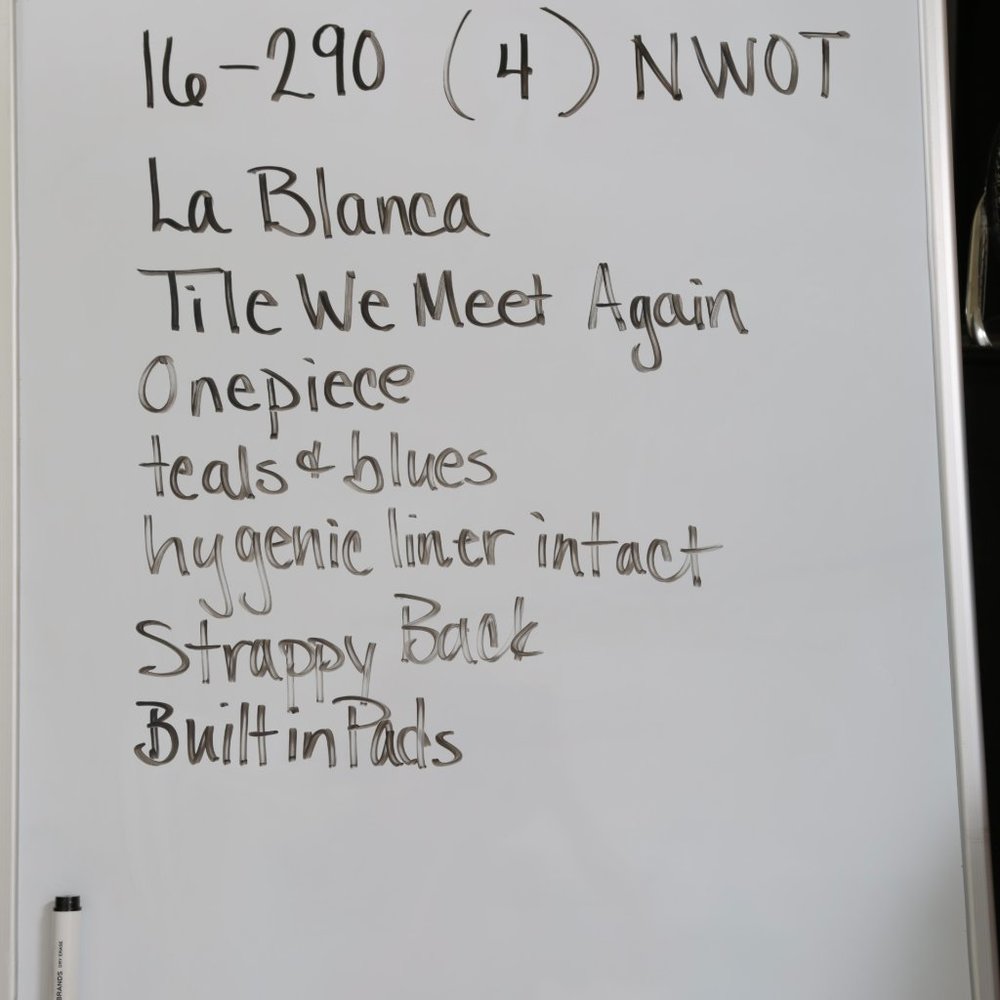 16-290 (4) NWOT
La Blanca
Tile We Meet Again
Onepiece
teals & blues
hygenic liner intact
Strappy Back
Built in Pads
BRANDS DRY ERASE